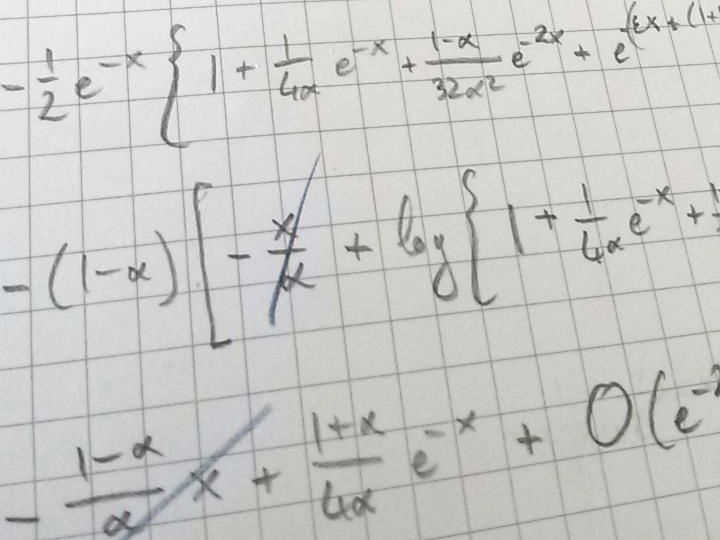 - 1/2 e^{-x} { 1 + 1/4α e^{-x} + 1-α/32α² e^{-2x} + e^{-(
- (1-α) [ - x/α + log { 1 + 1/4α e^{-x} +
- 1-α/α x + 1+α/4α e^{-x} + O(e^{-